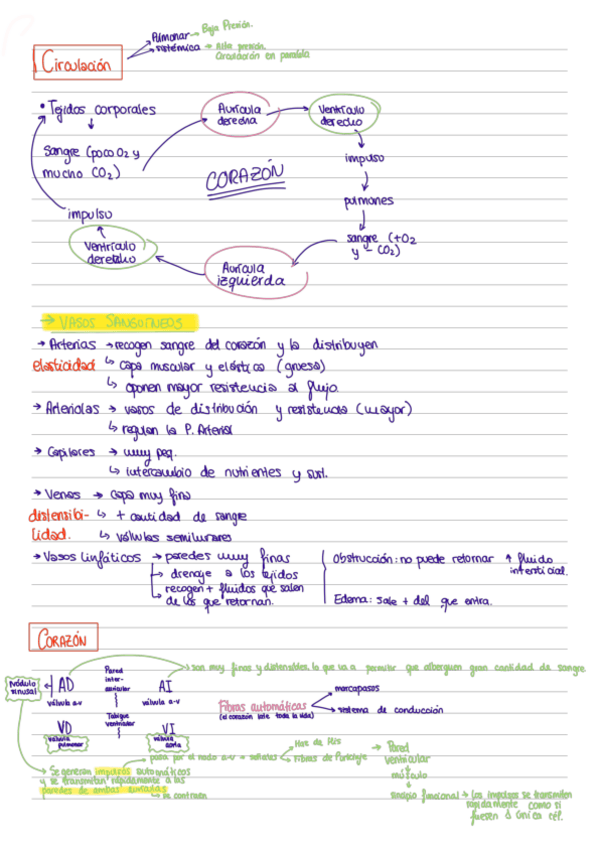 Circulación
Pulmonar → Baja Presión.
sistémica → Alta presión.
Circulación en paralelo
• Tejidos corporales
Sangre (poco O2 y
mucho CO2)
Aurícula
derecha
Ventrículo
derecho
impulso
pulmones
sangre (+O2
y - CO2)
Aurícula
izquierda
Ventrículo
derecho
impulso
CORAZÓN
→ VASOS SANGUÍNEOS
→ Arterias → recogen sangre del corazón y la distribuyen
elasticidad ↳ capa muscular y elástica (gruesa)
↳ oponen mayor resistencia al flujo.
→ Arteriolas → vasos de distribución y resistencia (mayor)
↳ regulan la P. Arterial
→ Capilares → muy peq.
↳ intercambio de nutrientes y sust.
→ Venas → capa muy fina
distensibi- ↳ + cantidad de sangre
lidad. ↳ válvulas semilunares
→ Vasos linfáticos → paredes muy finas
↳ drenaje a los tejidos
↳ recogen + fluidos que salen
de los que retornan.
Obstrucción: no puede retornar ↑ fluido
intersticial.
Edema: sale + del que entra.
CORAZÓN
→ son muy finas y distensibles, lo que va a permitir que alberguen gran cantidad de sangre
Nódulo
sinusal
AD
válvula a-v
Pared
inter-
auricular
AI
válvula a-v
VD
válvula
pulmonar
Tabique
ventricular
VI
válvula
aorta
Fibras automáticas
(el corazón late toda la vida)
marcapasos
sistema de conducción
→ Se generan impulsos automáticos
y se transmiten rápidamente a las
paredes de ambas aurículas
↳ se contraen
pasa por el nodo a-v → señales
Has de His
Fibras de Purkinje
→ Pared
ventricular
músculo
sincitio funcional → los impulsos se transmiten
rápidamente como si
fuesen a única cél.